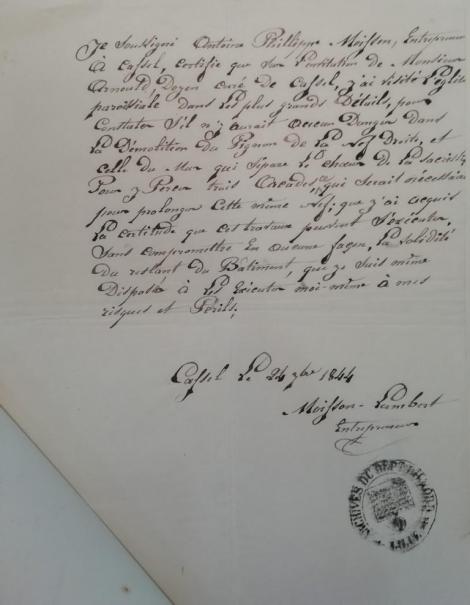 Je Soussigné Antoine Phillippe Moisson, Entrepreneur
à Cassel, certifie que sur l'invitation de Monsieur
Arnould, Doyen curé de Cassel, j'ai visité l'église
paroissiale dans les plus grands Détails, pour
Constater s'il n'y aurait aucun Danger dans
la Démolition du Pignon de la Nef Droite, et
celle du Mur qui sépare le chœur de la sacristie
Pour y Percer trois Arcades, qui serait nécessaire
pour prolonger Cette même Nef; que j'ai acquis
la certitude que ces travaux peuvent s'exécuter,
Sans compromettre en aucune façon, la solidité
du restant du Bâtiment, que je suis même
Disposé à les Exécuter moi-même à mes
risques et Périls;
Cassel le 24 9bre 1844
Moisson-Lambert
Entrepreneur
ARCHIVES DU DEPT DU NORD
LILLE